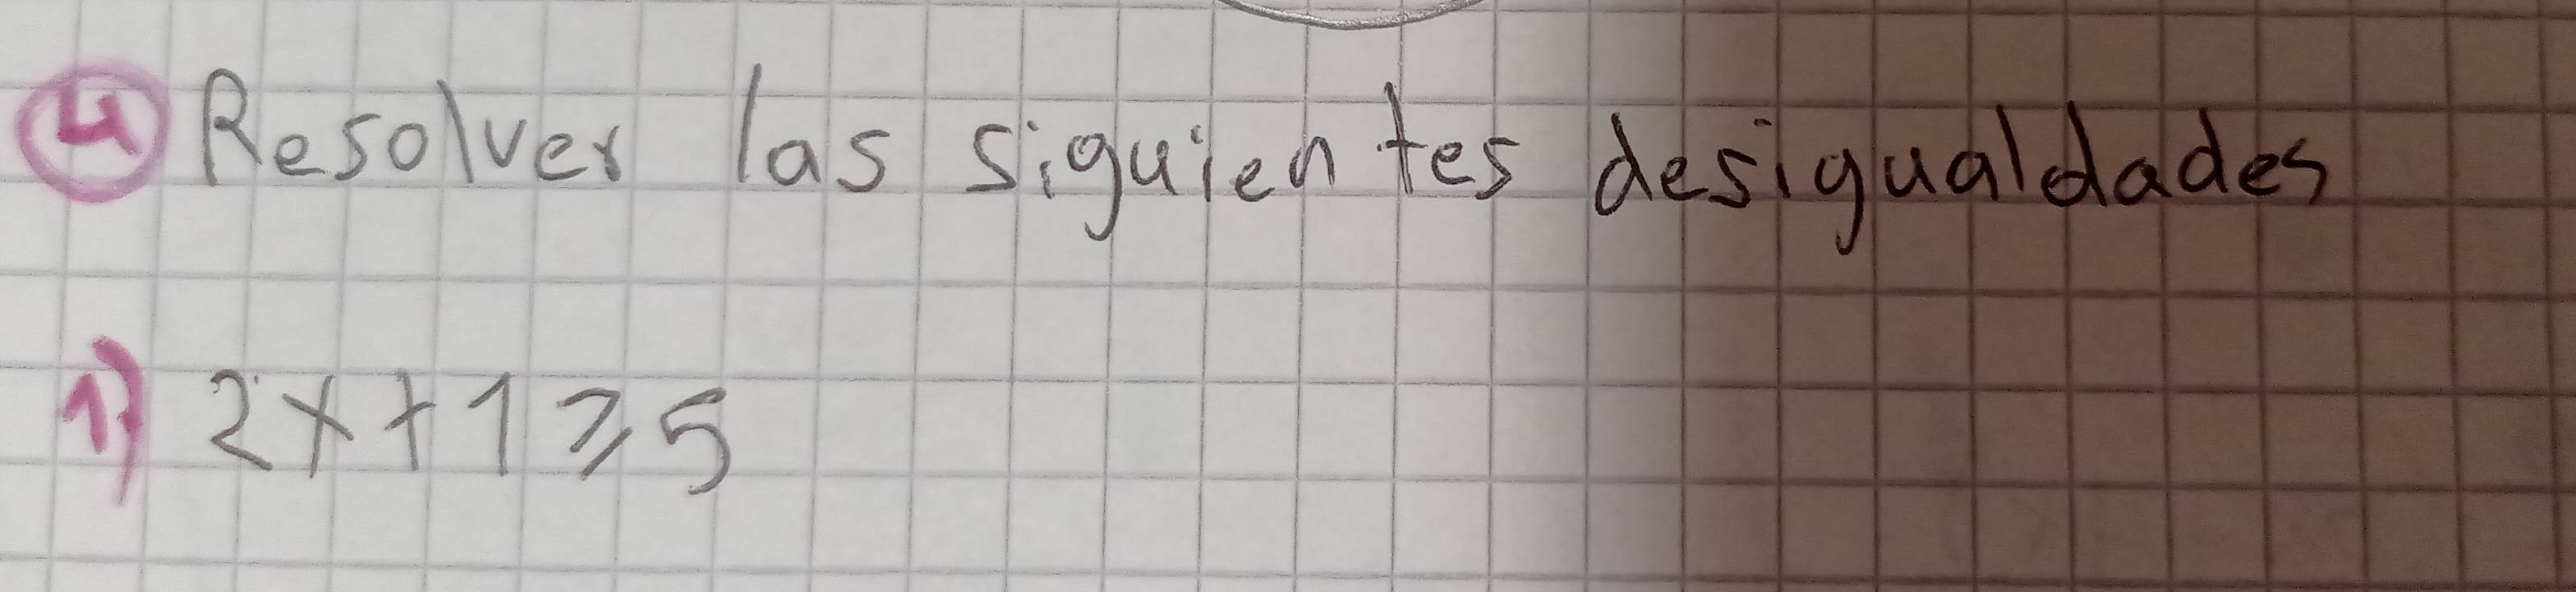 4 Resolver las siguientes desigualdades
1) 2x+1≥5